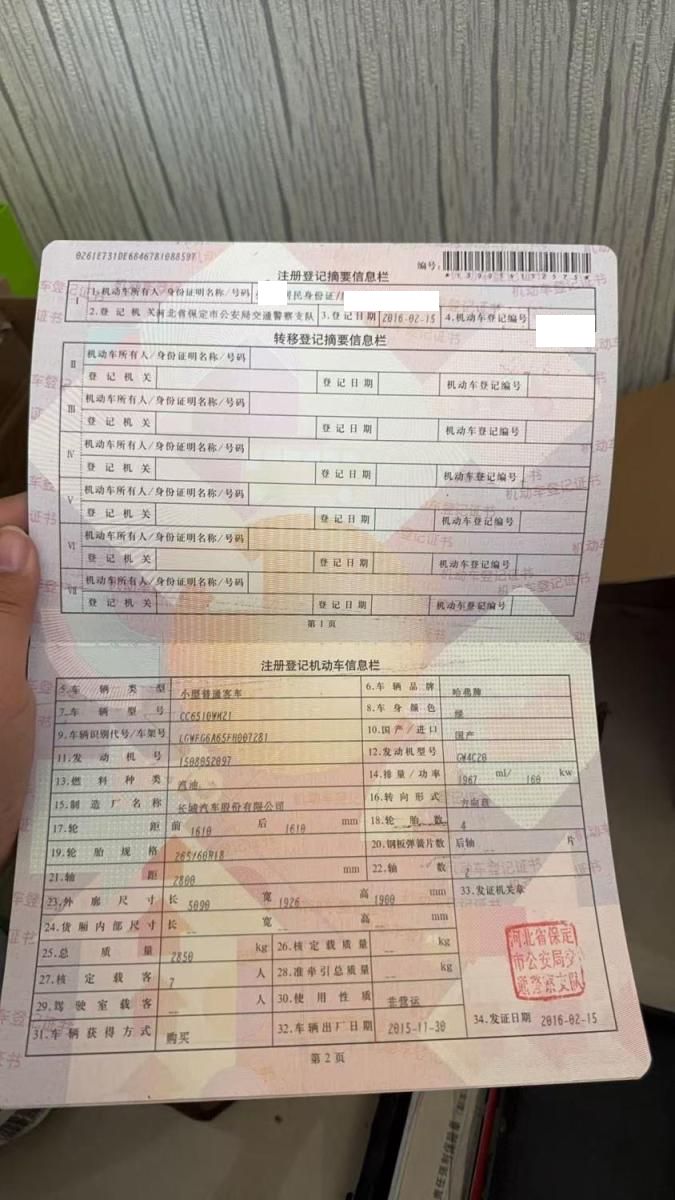 0261E731DE6846781088597
编号:
*130014152575*
注册登记摘要信息栏
I 1.机动车所有人/身份证明名称/号码 居民身份证/
2.登记机关 河北省保定市公安局交通警察支队 3.登记日期 2016-02-15 4.机动车登记编号
转移登记摘要信息栏
II 机动车所有人/身份证明名称/号码
登记机关 登记日期 机动车登记编号
III 机动车所有人/身份证明名称/号码
登记机关 登记日期 机动车登记编号
IV 机动车所有人/身份证明名称/号码
登记机关 登记日期 机动车登记编号
V 机动车所有人/身份证明名称/号码
登记机关 登记日期 机动车登记编号
VI 机动车所有人/身份证明名称/号码
登记机关 登记日期 机动车登记编号
VII 机动车所有人/身份证明名称/号码
登记机关 登记日期 机动车登记编号
第1页
注册登记机动车信息栏
5.车辆类型 小型普通客车 6.车辆品牌 哈弗牌
7.车辆型号 CC6510WM21 8.车身颜色 绿
9.车辆识别代号/车架号 LGWFG6A65FH007281 10.国产/进口 国产
11.发动机号 1508052097 12.发动机型号 GW4C20
13.燃料种类 汽油 14.排量/功率 1967 ml/ 160 kw
15.制造厂名称 长城汽车股份有限公司 16.转向形式 方向盘
17.轮距 前 1610 后 1610 mm 18.轮胎数 4
19.轮胎规格 265/60R18 20.钢板弹簧片数 后轴 片
21.轴距 2800 mm 22.轴数 2
23.外廓尺寸 长 5090 宽 1926 高 1900 mm 33.发证机关章
24.货厢内部尺寸 长 -- 宽 -- 高 -- mm
25.总质量 2850 kg 26.核定载质量 -- kg
27.核定载客 7 人 28.准牵引总质量 -- kg
29.驾驶室载客 -- 人 30.使用性质 非营运
31.车辆获得方式 购买 32.车辆出厂日期 2015-11-30 34.发证日期 2016-02-15
河北省保定
市公安局交
通警察支队
第2页
责任强制保险单